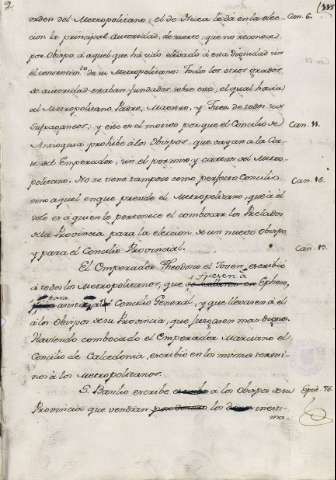 2.
orden del Metropolitano; el de Nicea le da en la elec-
cion la principal autoridad de suerte, que no reconoce Can. 6.
por Obispo à aquel que há sido elevado à esta dignidad sin
el consentim.to de su Metropolitano: Todos los otros grados
de autoridad estaban fundados sobre esto, el qual hacia
al Metropolitano Padre, Maestro, y Juez de todos sus
Sufraganeos, y esto es el motivo porque el Concilio de
Antioquia prohibe à los Obispos, que vayan à la Cor- Can. 11.
te del Emperador, sin el permiso y cartas del Metro-
politano. No se tiene tampoco como perfecto Concilio
sino aquel en que preside el Metropolitano, que à él Can. 16.
solo es à quien le pertenece el combocar los Prelados
de la Provincia para la eleccion de un nuevo Obispo
y para el Concilio Provincial. Can. 19.
El Emperador Theodosio el Joven, escribió
à todos los Metropolitanos, que fuesen à Epheso,
para Concilio General, y que llevasen à él
à los Obispos de su Provincia, que juzgasen mas dignos.
Haviendo combocado el Emperador Marciano el
Concilio de Calcedonia, escribió en los mismos termi-
nos à los Metropolitanos.
S. Basilio escribe à los Obispos de su Epist. 76.
Provincia que vendran los enemi-